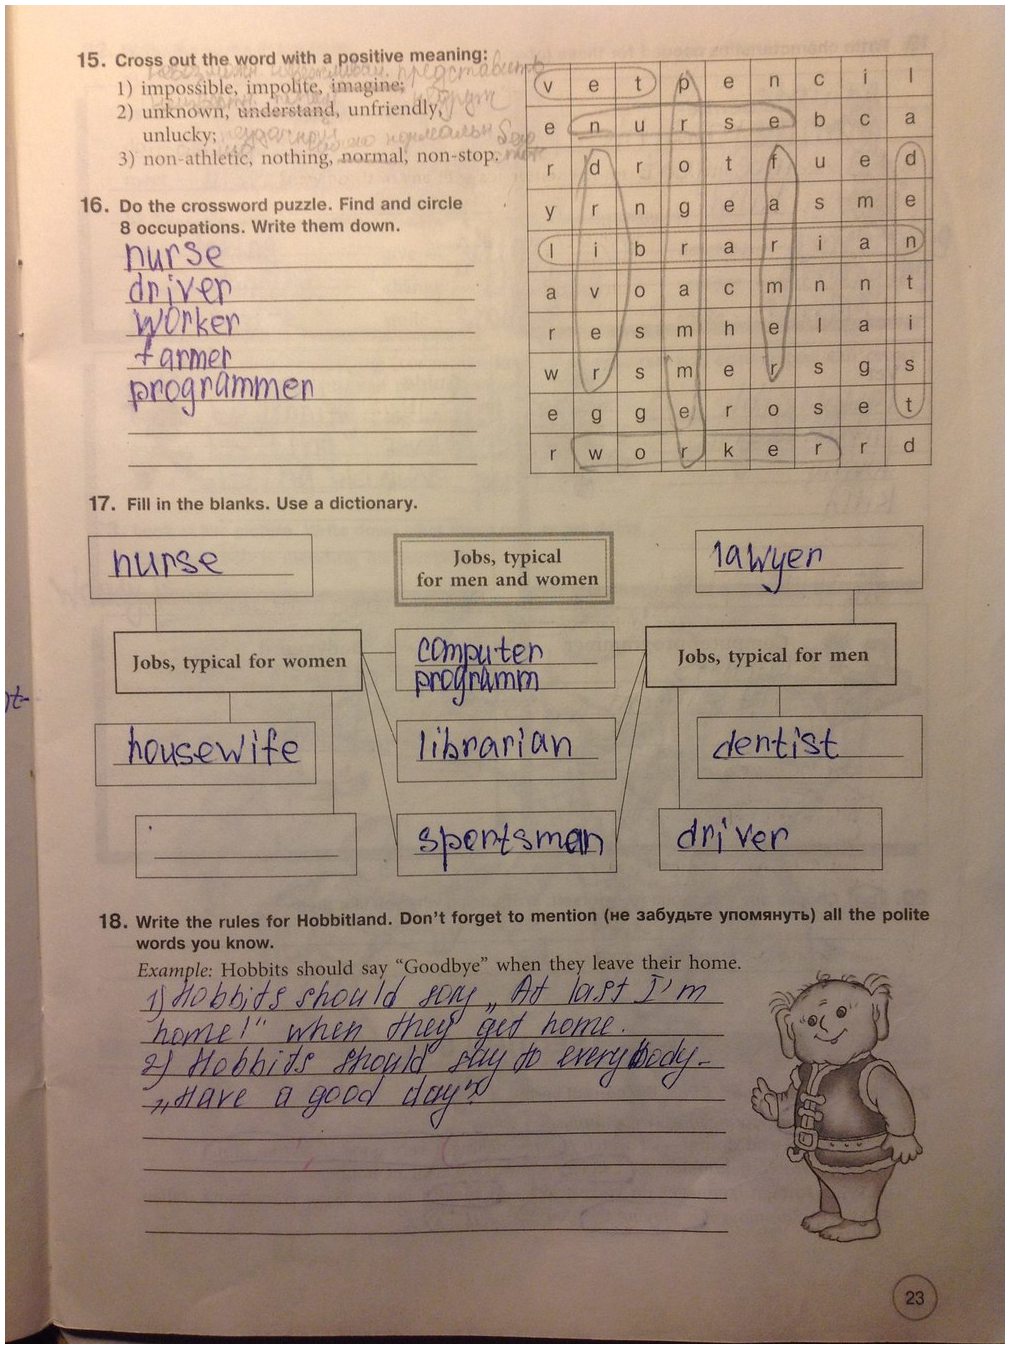 15. Cross out the word with a positive meaning:
1) impossible, impolite, imagine;
2) unknown, understand, unfriendly,
unlucky;
3) non-athletic, nothing, normal, non-stop.
16. Do the crossword puzzle. Find and circle
8 occupations. Write them down.
nurse
driver
worker
farmer
programmer
v e t p e n c i l
e n u r s e b c a
r d r o t f u e d
y r n g e a s m e
l i b r a r i a n
a v o a c m n n t
r e s m h e l a i
w r s m e r s g s
e g g e r o s e t
r w o r k e r r d
17. Fill in the blanks. Use a dictionary.
nurse
Jobs, typical
for men and women
lawyer
Jobs, typical for women
computer
programm
Jobs, typical for men
housewife
librarian
dentist
sportsman
driver
18. Write the rules for Hobbitland. Don't forget to mention (не забудьте упомянуть) all the polite
words you know.
Example: Hobbits should say "Goodbye" when they leave their home.
1) Hobbits should say „At last I'm
home!" when they get home.
2) Hobbits should say to everybody -
„Have a good day"
23